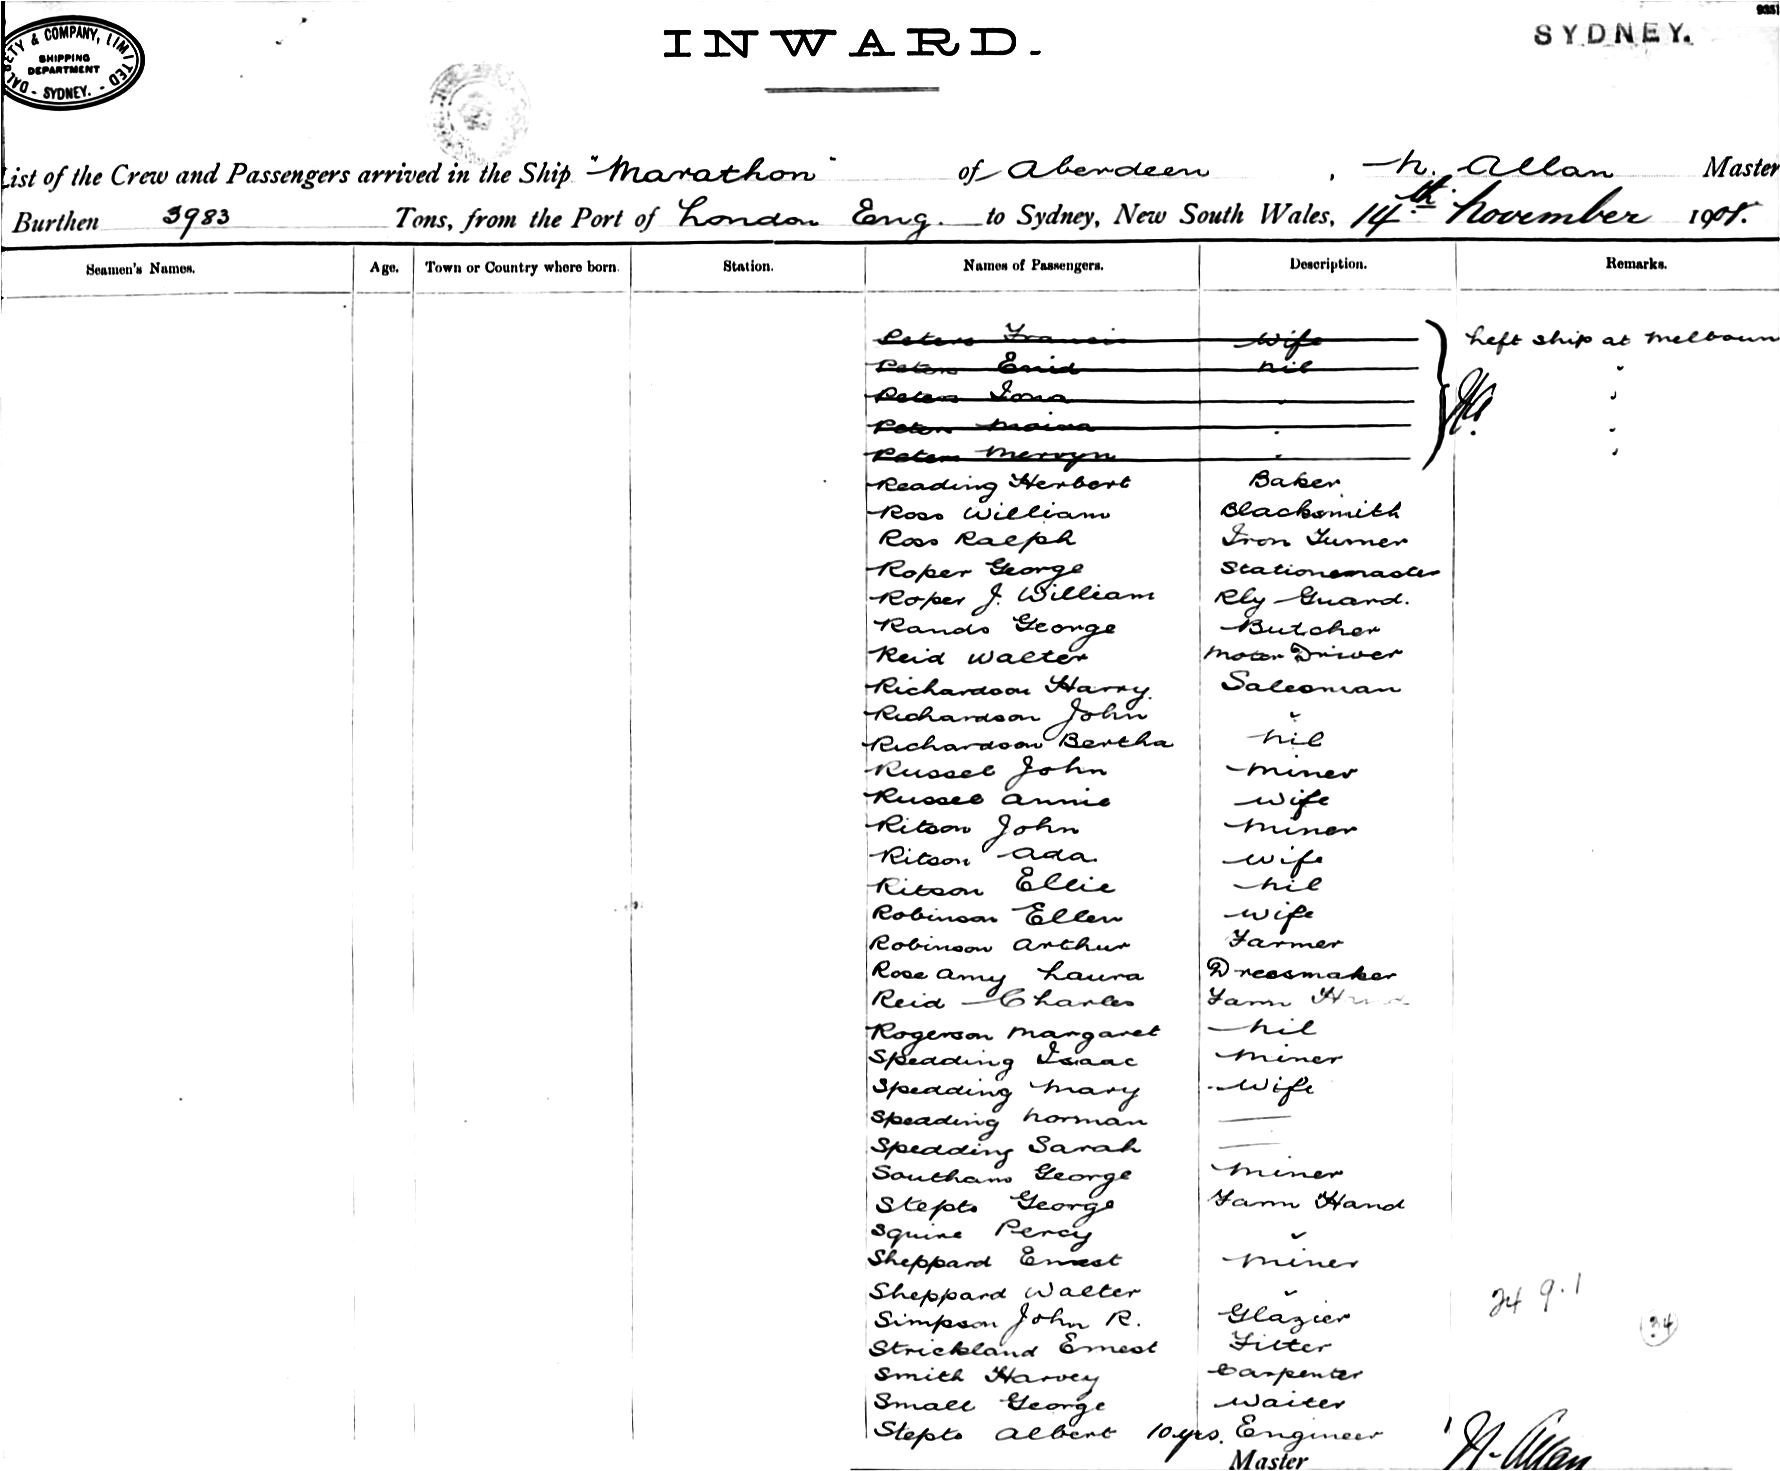 DALGETY & COMPANY, LIMITED
SHIPPING
DEPARTMENT
- SYDNEY. -
INWARD.
SYDNEY.
List of the Crew and Passengers arrived in the Ship "Marathon" of Aberdeen, N. Allan Master
Burthen 3983 Tons, from the Port of London Eng. to Sydney, New South Wales, 14th November 1908.
Seamen's Names. Age. Town or Country where born. Station. Names of Passengers. Description. Remarks.
Peters Francis Wife Left ship at Melbourn
Peters Enid Nil "
Peters Iona " "
Peters Moira " "
Peters Mervyn " "
Reading Herbert Baker
Ross William Blacksmith
Ross Ralph Iron Turner
Roper George Stationmaster
Roper J. William Rly Guard.
Rands George Butcher
Reid Walter Motor Driver
Richardson Harry Salesman
Richardson John "
Richardson Bertha Nil
Russel John Miner
Russel Annie Wife
Ritson John Miner
Ritson Ada Wife
Ritson Ellie Nil
Robinson Ellen Wife
Robinson Arthur Farmer
Rose Amy Laura Dressmaker
Reid Charles Farm Hand
Rogerson Margaret Nil
Spedding Isaac Miner
Spedding Mary Wife
Spedding Norman —
Spedding Sarah —
Southam George Miner
Stepto George Farm Hand
Squire Percy "
Sheppard Ernest Miner
Sheppard Walter "
Simpson John R. Glazier
Strickland Ernest Fitter
Smith Harvey Carpenter
Small George Waiter
Stepto Albert 10 yrs. Engineer
24 9.1
34
Master N. Allan